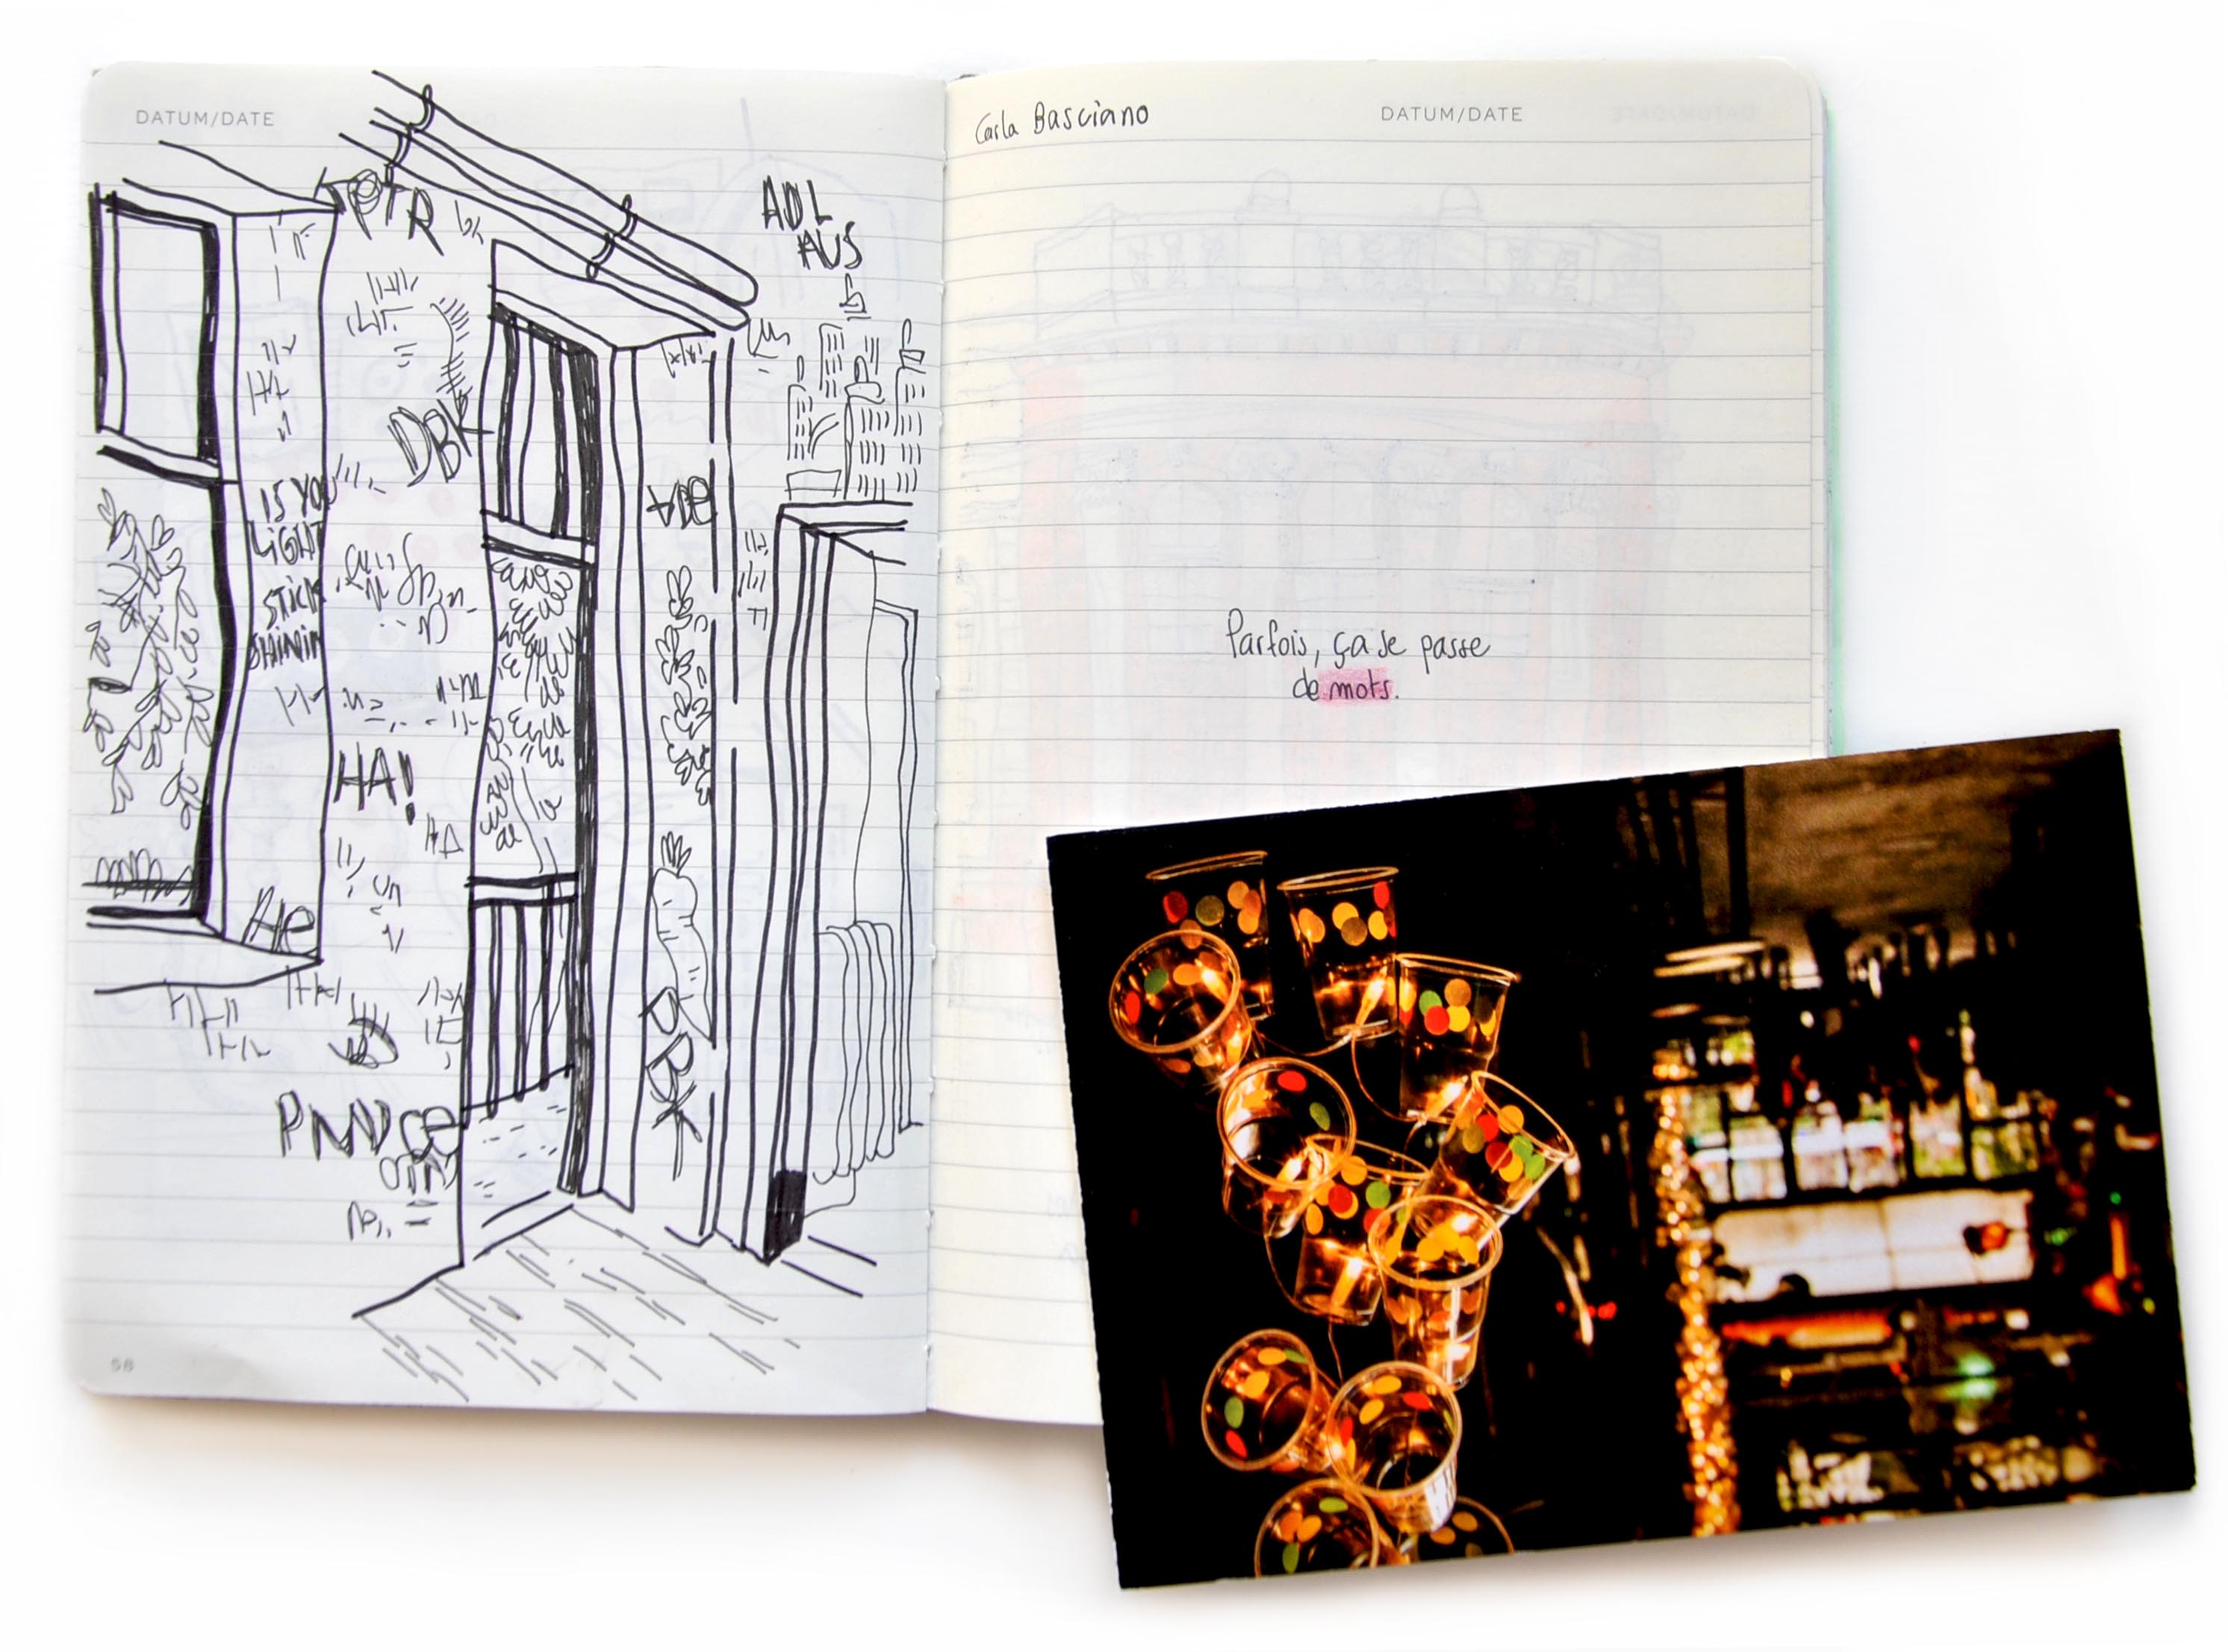 DATUM/DATE
PTR
ADL
AUS
DBK
IS YOU
LIGHT
STICK
SHININ
HA!
HA
He
DBK
58
Carla Basciano
DATUM/DATE
Parfois, ça se passe
de mots.